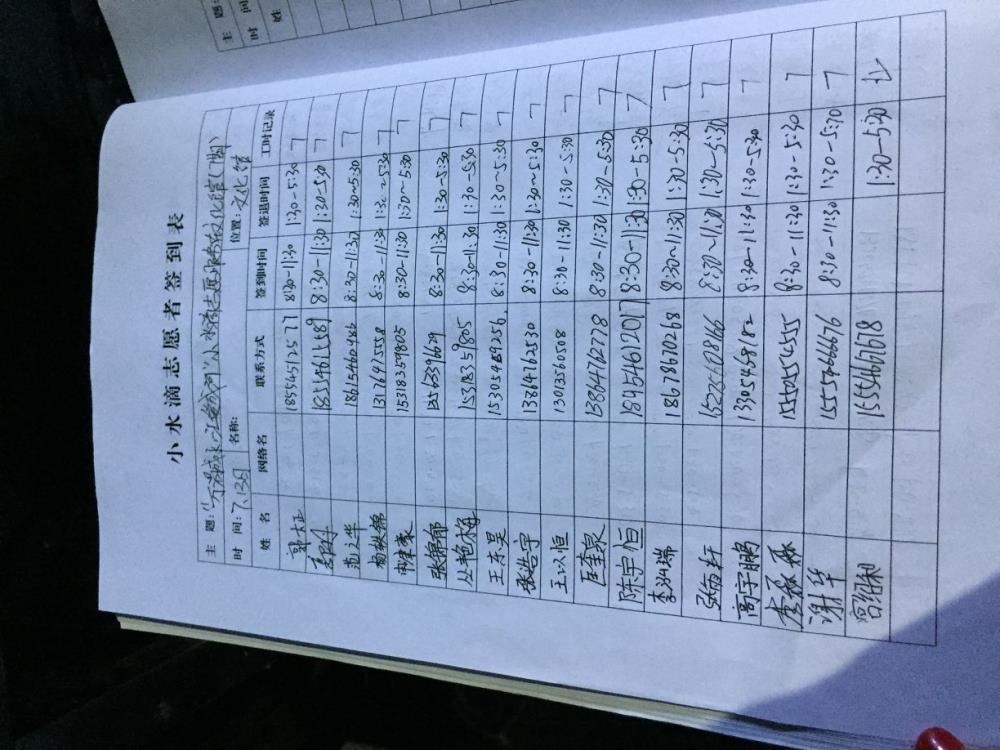 小水滴志愿者签到表
主 题:"万滴成水 小水滴志愿服务文化馆
时 间: 7.13日 名称: 位置: 文化馆
姓 名 网络名 联系方式 签到时间 签退时间 工时记录
郭大正 18554572577 8:30-11:30 1:30-5:30 7
18554615589 8:30-11:30 1:30-5:30 7
范文华 18615460486 8:30-11:30 1:30-5:30 7
13176475558 8:30-11:30 1:30-5:30 7
15318359805 8:30-11:30 1:30-5:30 7
张锦郁 8:30-11:30 1:30-5:30 7
丛艳梅 15318359805 8:30-11:30 1:30-5:30 7
王东昊 15305469256 8:30-11:30 1:30-5:30 7
张浩宇 13864762530 8:30-11:30 1:30-5:30 7
王以恒 13013560508 8:30-11:30 1:30-5:30 7
匡奎泉 13864762778 8:30-11:30 1:30-5:30 7
陈宇恒 18954612017 8:30-11:30 1:30-5:30 7
李泓瑞 18678670268 8:30-11:30 1:30-5:30 7
15228608166 8:30-11:30 1:30-5:30 7
高宇鹏 13305458182 8:30-11:30 1:30-5:30 7
李森森 15550254555 8:30-11:30 1:30-5:30 7
谢华 15557666676 8:30-11:30 1:30-5:30 7
宫绍和 15554676718 1:30-5:30 4
主 题:
时 间
姓